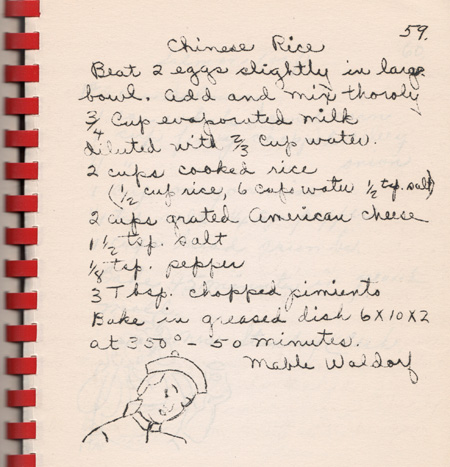 59.
Chinese Rice
Beat 2 eggs slightly in large
bowl. Add and mix thoroly
3/4 Cup evaporated milk
diluted with 2/3 cup water.
2 cups cooked rice
(1/2 cup rice, 6 cups water 1/2 tsp. salt)
2 cups grated American cheese
1 1/2 tsp. salt
1/8 tsp. pepper
3 Tbsp. chopped pimiento
Bake in greased dish 6X10X2
at 350° - 50 minutes.
Mable Waldorf